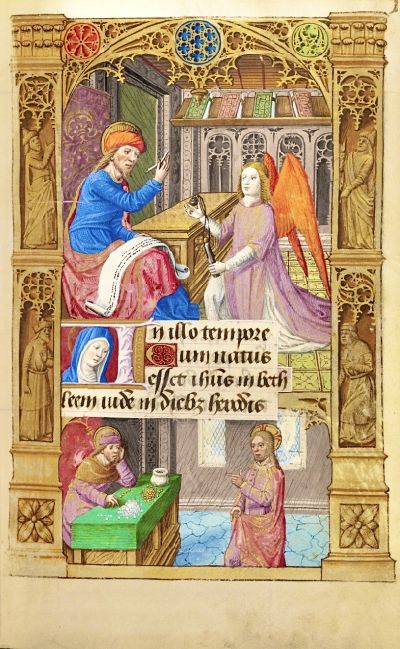 In illo tempore
Cum natus
esset ihus in beth
leem iude in diebz herodis